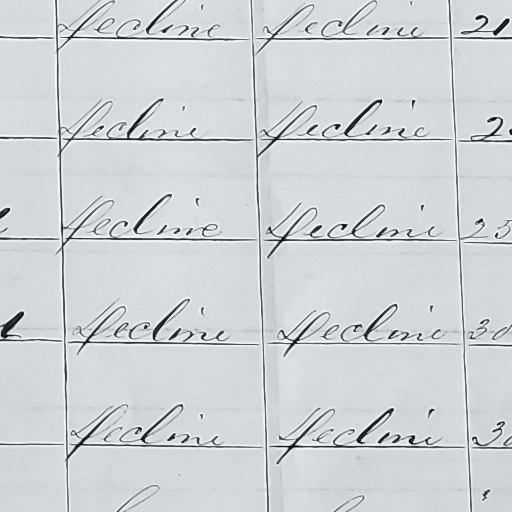 Decline Decline 21
Decline Decline 2
Decline Decline 25
Decline Decline 30
Decline Decline 30